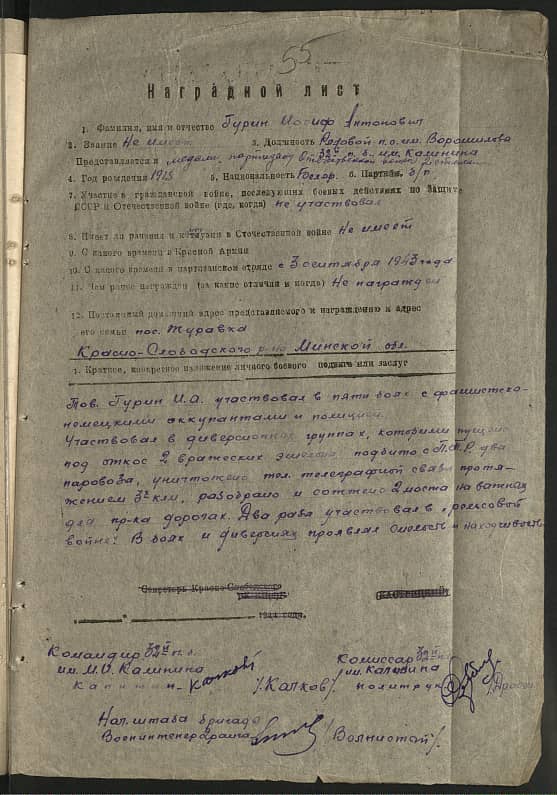 55
Наградной лист
1. Фамилия, имя и отчество Гурин Иосиф Антонович
2. Звание Не имеет 3. Должность Рядовой п.о. им. Ворошилова
32й п.б. им. Калинина
Представляется к медали, партизану Отечественной войны
4. Год рождения 5. Национальность Белор. 6. Партийн. б/п
7. Участие в гражданской войне, последующих боевых действиях по защите
СССР и Отечественной войне (где, когда) не участвовал
8. Имеет ли ранения и контузии в Отечественной войне Не имеет
9. С какого времени в Красной Армии
10. С какого времени в партизанском отряде с 3 сентября 1943 года
11. Чем ранее награжден (за какие отличия и когда) Не награжден
12. Постоянный домашний адрес представляемого к награждению и адрес
его семьи пос. Журавка
Красно-Слободского р-на Минской обл.
1. Краткое, конкретное изложение личного боевого подвига или заслуг
Тов. Гурин И.А. участвовал в пяти боях с фашистско-
немецкими аккупантами и полицией.
Участвовал в диверсионных группах, которыми пущено
под откос 2 вражеских эшелона, подбито с П.Т.Р. два
паровоза, уничтожено тел. телеграфной связи протя-
жением 3 км, разобрано и сожжено 2 моста на важных
для пр-ка дорогах. Два раза участвовал в "рельсовой
войне". В боях и диверсиях проявлял смелость и находчивость
Секретарь Красно-Слободского
1944 года.
Командир 32й п.б.
им. М.И. Калинина
Капитан /Калков/
Комиссар 32й п.б.
им. Калинина
политрук
Нач. штаба бригады
Военинженер 3 ранга /Волнистый/